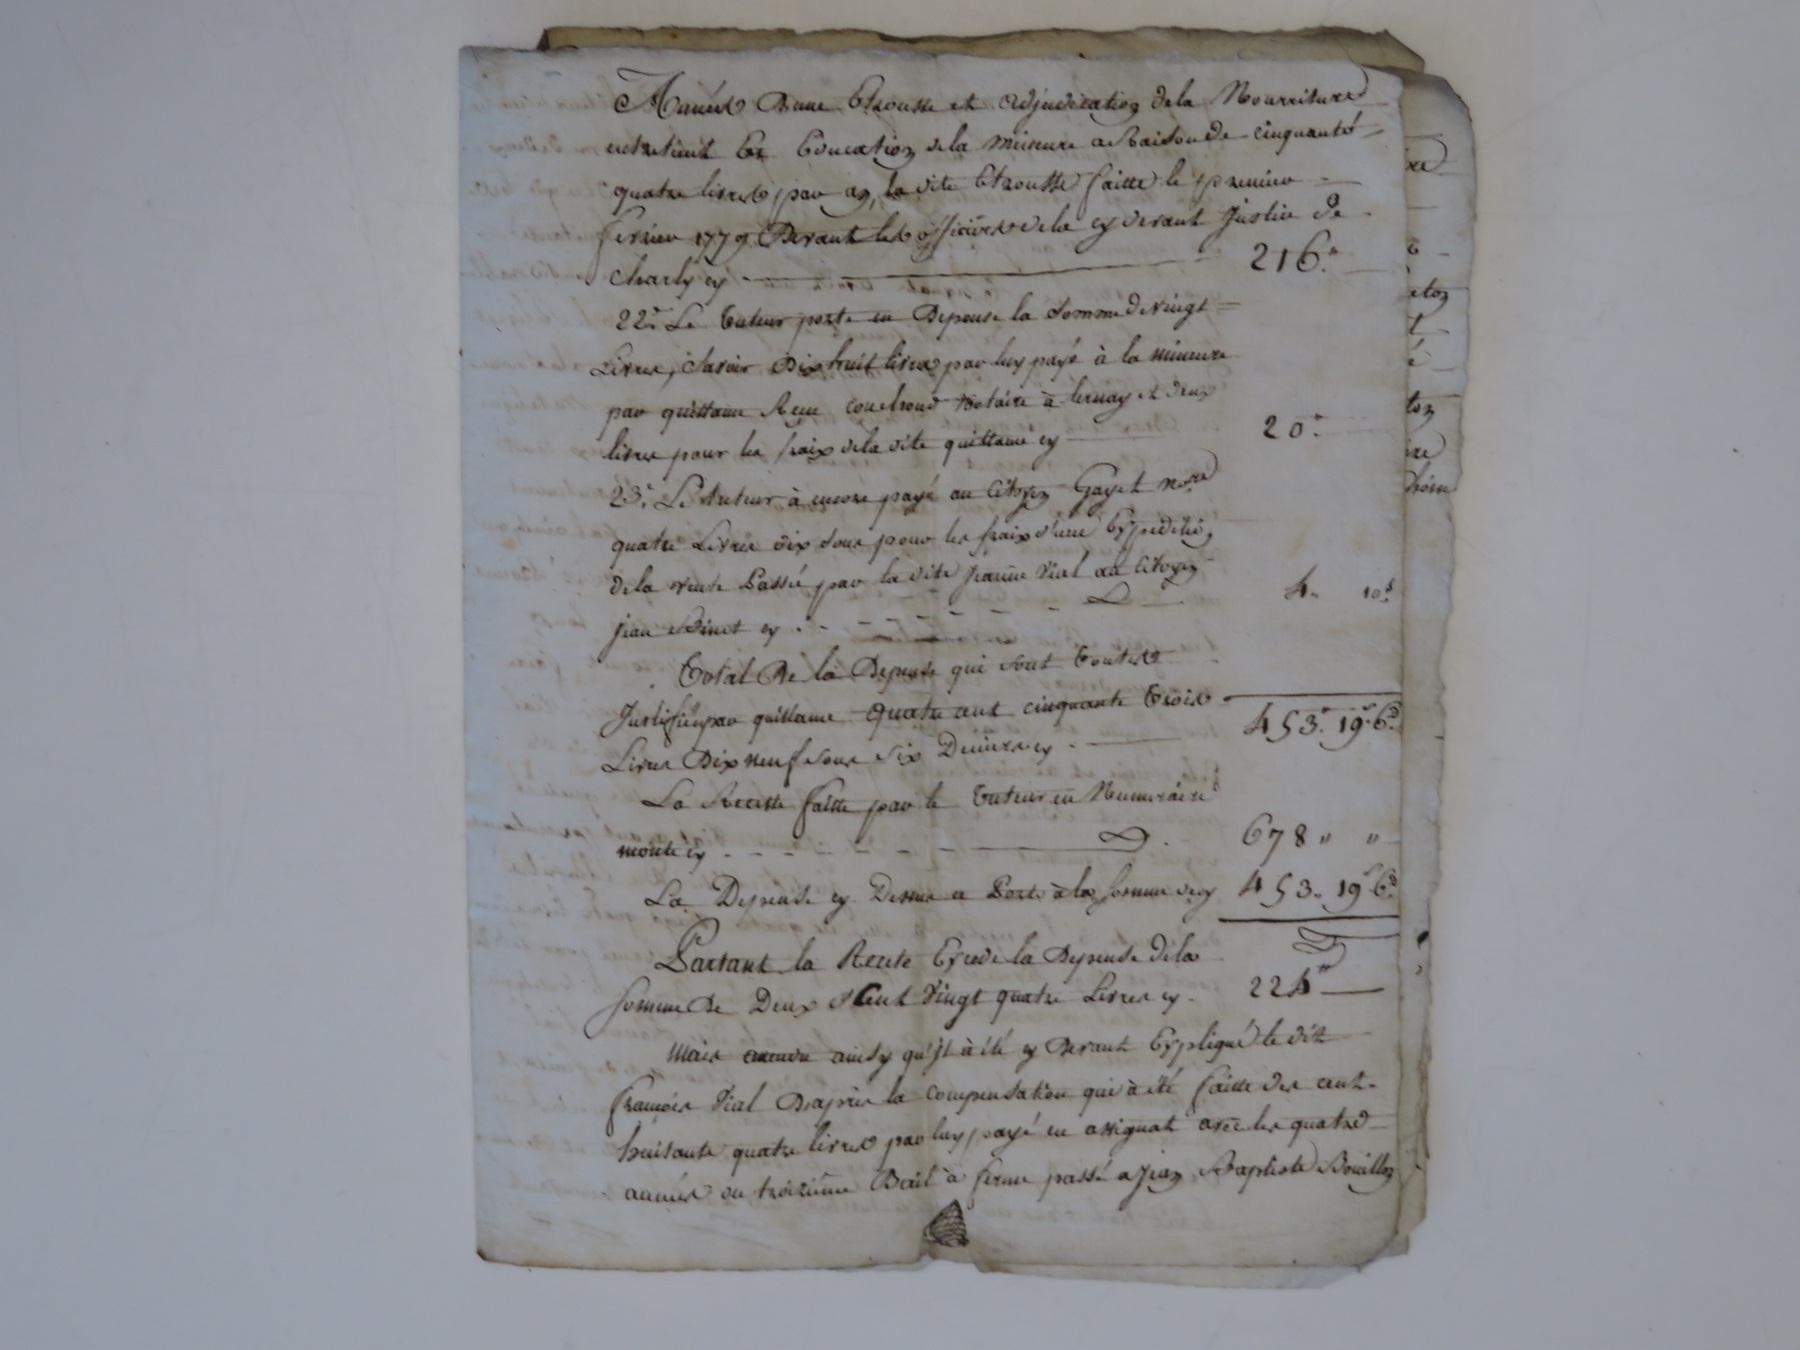 Années D'une Etrousse et adjudication de la Nourriture
entretient Et Education de la mineure a Raison de cinquante
quatre livres par an, la dite Etrousse faitte le premier
fevrier 1779 Devant les officiers de la cy devant Justice de
Charly cy 216.ᵗ
22.° Le Tuteur porte en Depense la Somme de vingt
Livres, Savoir Dix huit livres par luy payé à la mineure
par quittance Reçue Notaire à et deux
livres pour les fraix de la dite quittance cy 20.ᵗ
23.° Le tuteur à encore payé au Citoyen Gayet no.re
quatre Livres dix sous pour les fraix d'une Expeditio,
de la vente Passée par la dite jeanne Vial au Citoyen
jean cy 4. 10.ˢ
Total De la Depense qui sont toutes
Justifié par quittance Quatre cent cinquante Trois
Livres Dix neuf sous Six Deniers cy 453.ᵗ 19.ˢ 6.ᵈ
La Recette faitte par le Tuteur en Numeraire
monte cy 678 " "
La Depense cy Dessus a Porté à la somme de cy 453. 19.ˢ 6.ᵈ
Partant la Recete Excede la Depense de la
somme De Deux Cent Vingt quatre Livres cy 224.ᵗ
Mais ainsy qu'jl à été cy Devant Expliqué le dit
françois Vial D'aprés la compensation qui à été faitte des cent
huitante quatre livres par luy payé en assignat avec les quatre
années du troizieme Bail à ferme passé a Jean Baptiste Bouillon